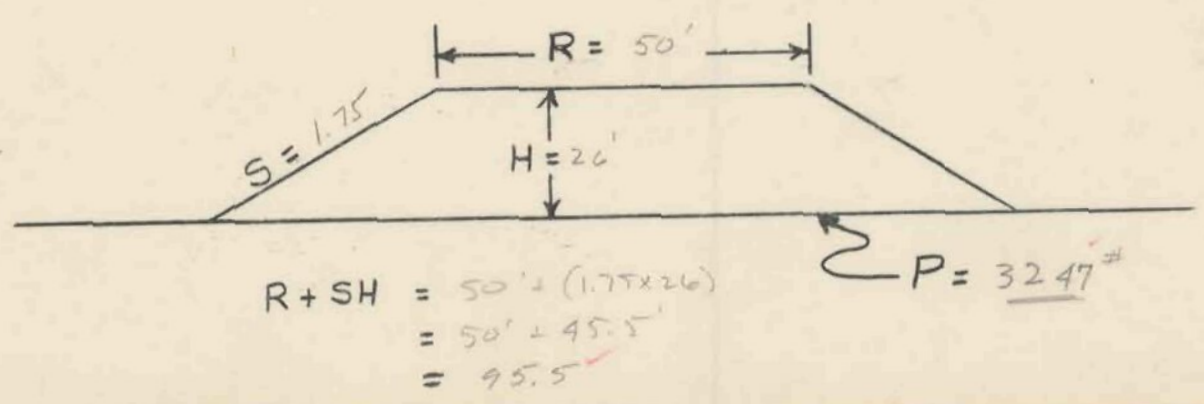 R = 50'
S = 1.75
H = 26'
P = 3247#
R + SH = 50' + (1.75x26)
= 50' + 45.5'
= 95.5'